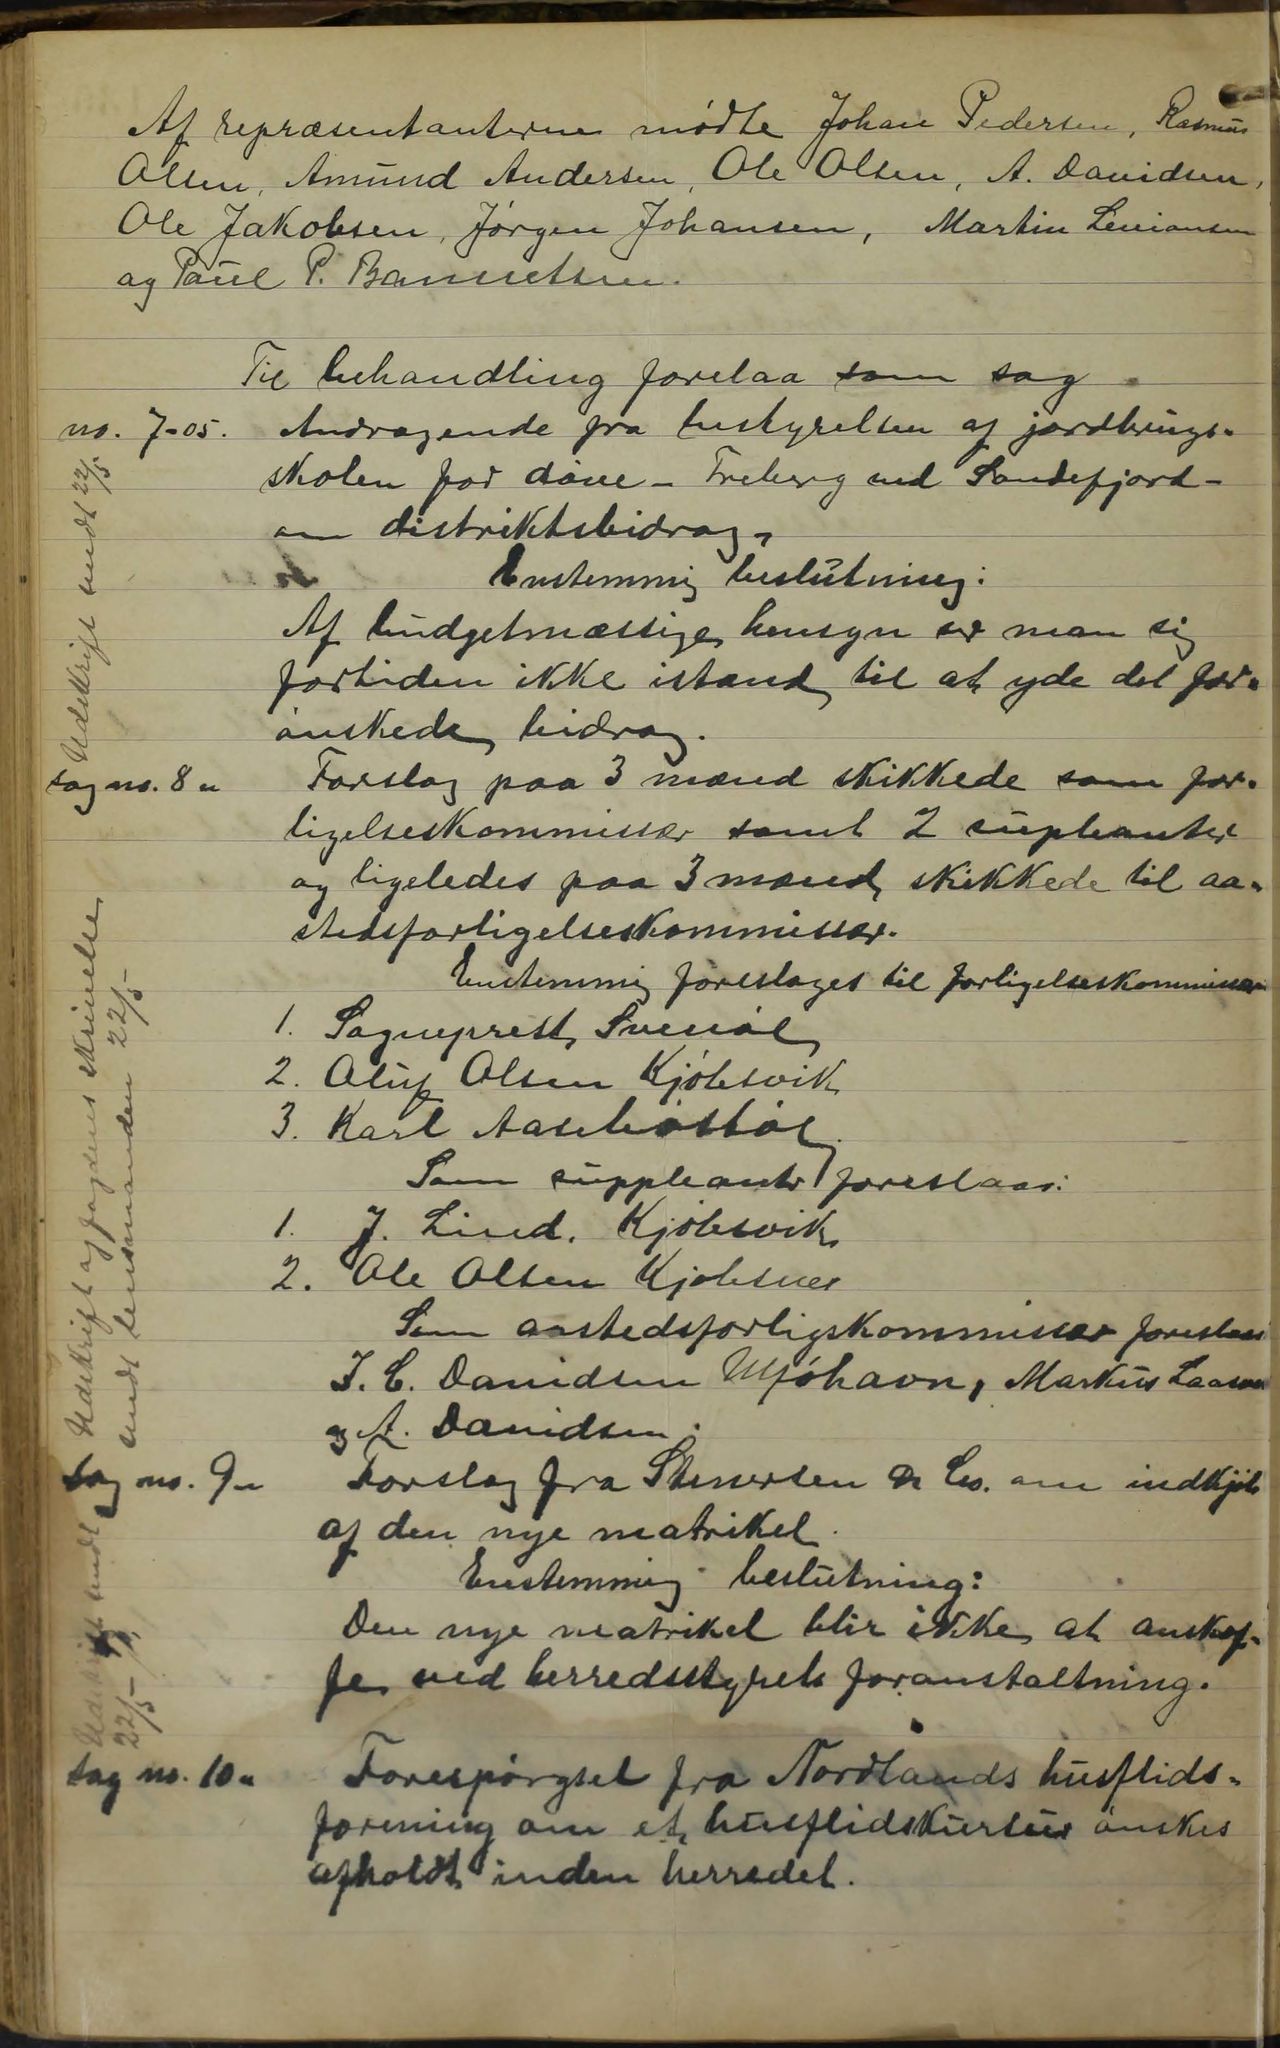 Af repræsentanterne mødte Johan Pedersen, Rasmus
Olsen, Amund Andersen, Ole Olsen, A. Davidsen,
Ole Jakobsen, Jørgen Johansen, Martin
og Paul P.
Til behandling forelaa som sag
no. 7-05. Andragende fra bestyrelsen af jordbrugs-
skolen for døve - Treberg ved Sandefjord -
om distriktsbidrag.
Enstemmig beslutning:
Af budgetmæssige hensyn ser man sig
fortiden ikke istand til at yde det for-
ønskede bidrag.
Udskrift sendt 22/5
sag no. 8 " Forslag paa 3 mænd skikkede som for-
ligelseskommissær samt 2 supleanter
og ligeledes paa 3 mænd skikkede til aa-
stedsforligelseskommissær.
Enstemmig foreslages til forligelseskommissær
1. Sogneprest
2. Oluf Olsen Kjøbsvik
3. Karl
Som suppleanter foreslaaes:
1. J. Lind. Kjøbsvik
2. Ole Olsen Kjøbsnes
Som aastedsforligskommissær foreslaaes
J. C. Davidsen Mjøhavn, Markus
og A. Davidsen.
Udskrift af fogdens skrivelse
sendt lensmanden 22/5
sag no. 9 " Forslag fra Stenersen & Co. om indkjøb
af den nye matrikel.
Enstemmig beslutning:
Den nye matrikel blir ikke at anskaf-
fe ved herredsstyrets foranstaltning.
Udskrift sendt
22/5
sag no. 10 " Forespørgsel fra Nordlands husflids-
forening om et husflidskursus ønskes
afholdt inden herredet.